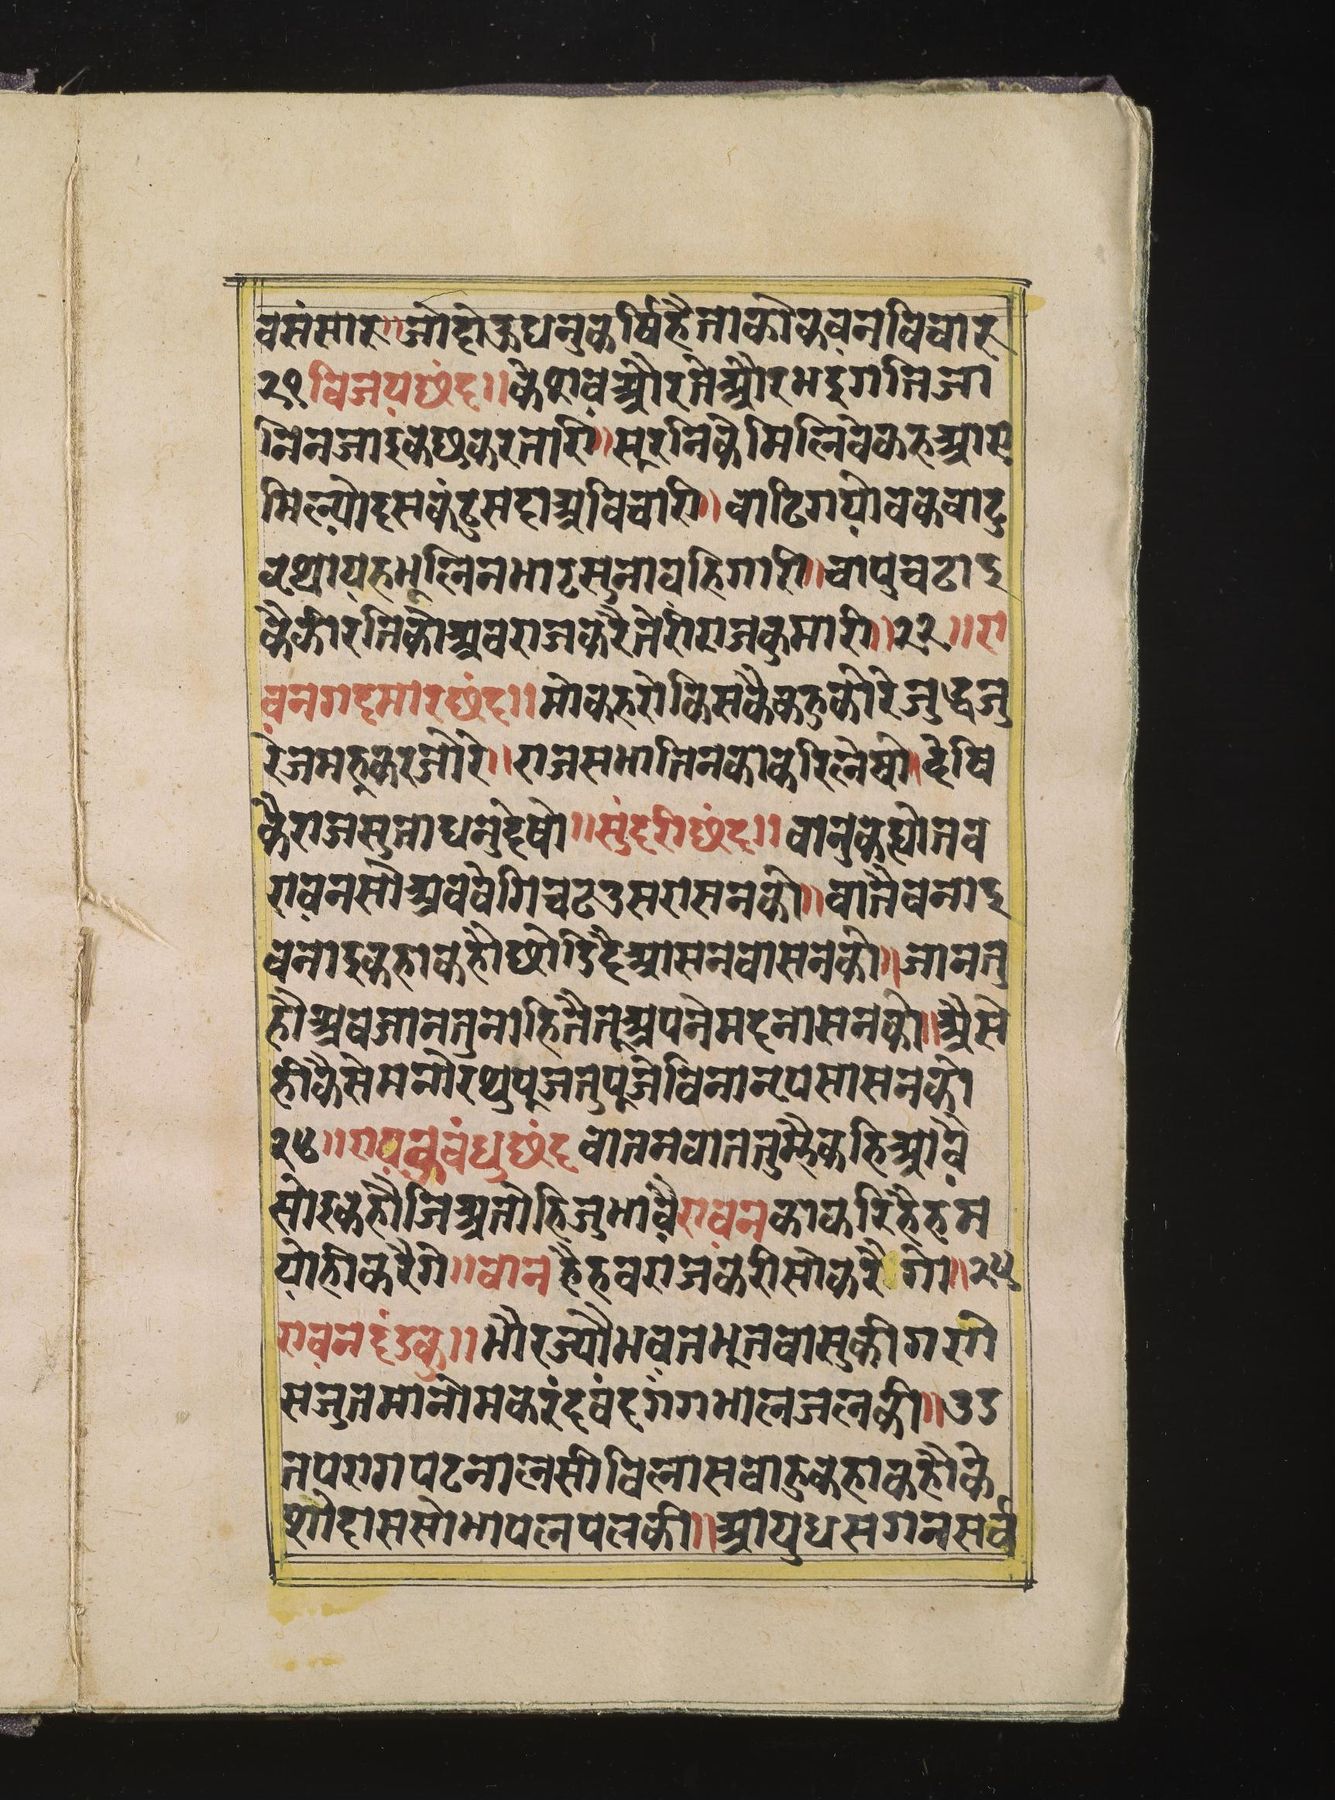 वसंसार॥जोहोऊधनुकर्षिहैताकौकवनविचार
२१विजयछंद॥केशवऔरतेऔरभइगतिजा
निनजाइकछुकरतारी॥सूरनिकेमिलिवेकहआए
मिल्योदसकंठुसदाअविचारी॥वाढिगयोवकवादु
वृथायहभूलिनभाटसुनावहिगारी॥चापुचढाइ
कैकीरतिकौअवराजकरैतेरीराजकुमारी॥२२॥रा
वनगदमारछंद॥मोकहरोकिसकैकहुकोरेजुद्धजु
रेजमहूकरजोरे॥राजसभातिनकाकरिलेषो॥देषि
कैराजसुताधनुदेषो॥सुंदरीछंद॥वानुकह्योतव
रावनसौअववेगिचढउसरासनकौ॥वातैवनाइ
वनाइकहाकहौछोडिदैआसनवासनकौ॥जानतु
हौअवजानतुनाहिनैतूअपनेमदनासनकौ॥ऐसे
हीकैसेमनोरथुपूजतुपूजेविनानृपसासनकौ
२४॥रावनबंधुछंद वातनवाततुम्हैकहिआवै
सोइकहौजिअतोहिजुभावैरावनकाकरिहैहम
योहीकरैगे॥वानहैहवराजकरीसोकरैगो॥२५
रावनदंडकु॥भौरज्यौभवतभूतवासुकीगरो
सजुतमानोमकरंदवंदगंगभालजलकी॥उड
तपरागपटनालसीविलासवाहुकहाकहौके
शौदाससोभापलपलकी॥आयुधसगनसर्व